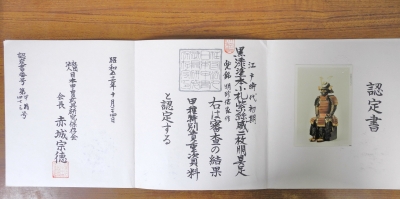 認定書
江戸時代初期
黒漆塗本小札紫絲威二枚胴具足
兜銘 明珍信家作
右は審査の結果
甲種特別貴重資料
と認定する
昭和五十二年十月二十四日
社団法人 日本甲冑武具研究保存会
会長 赤城宗徳
認定書番号